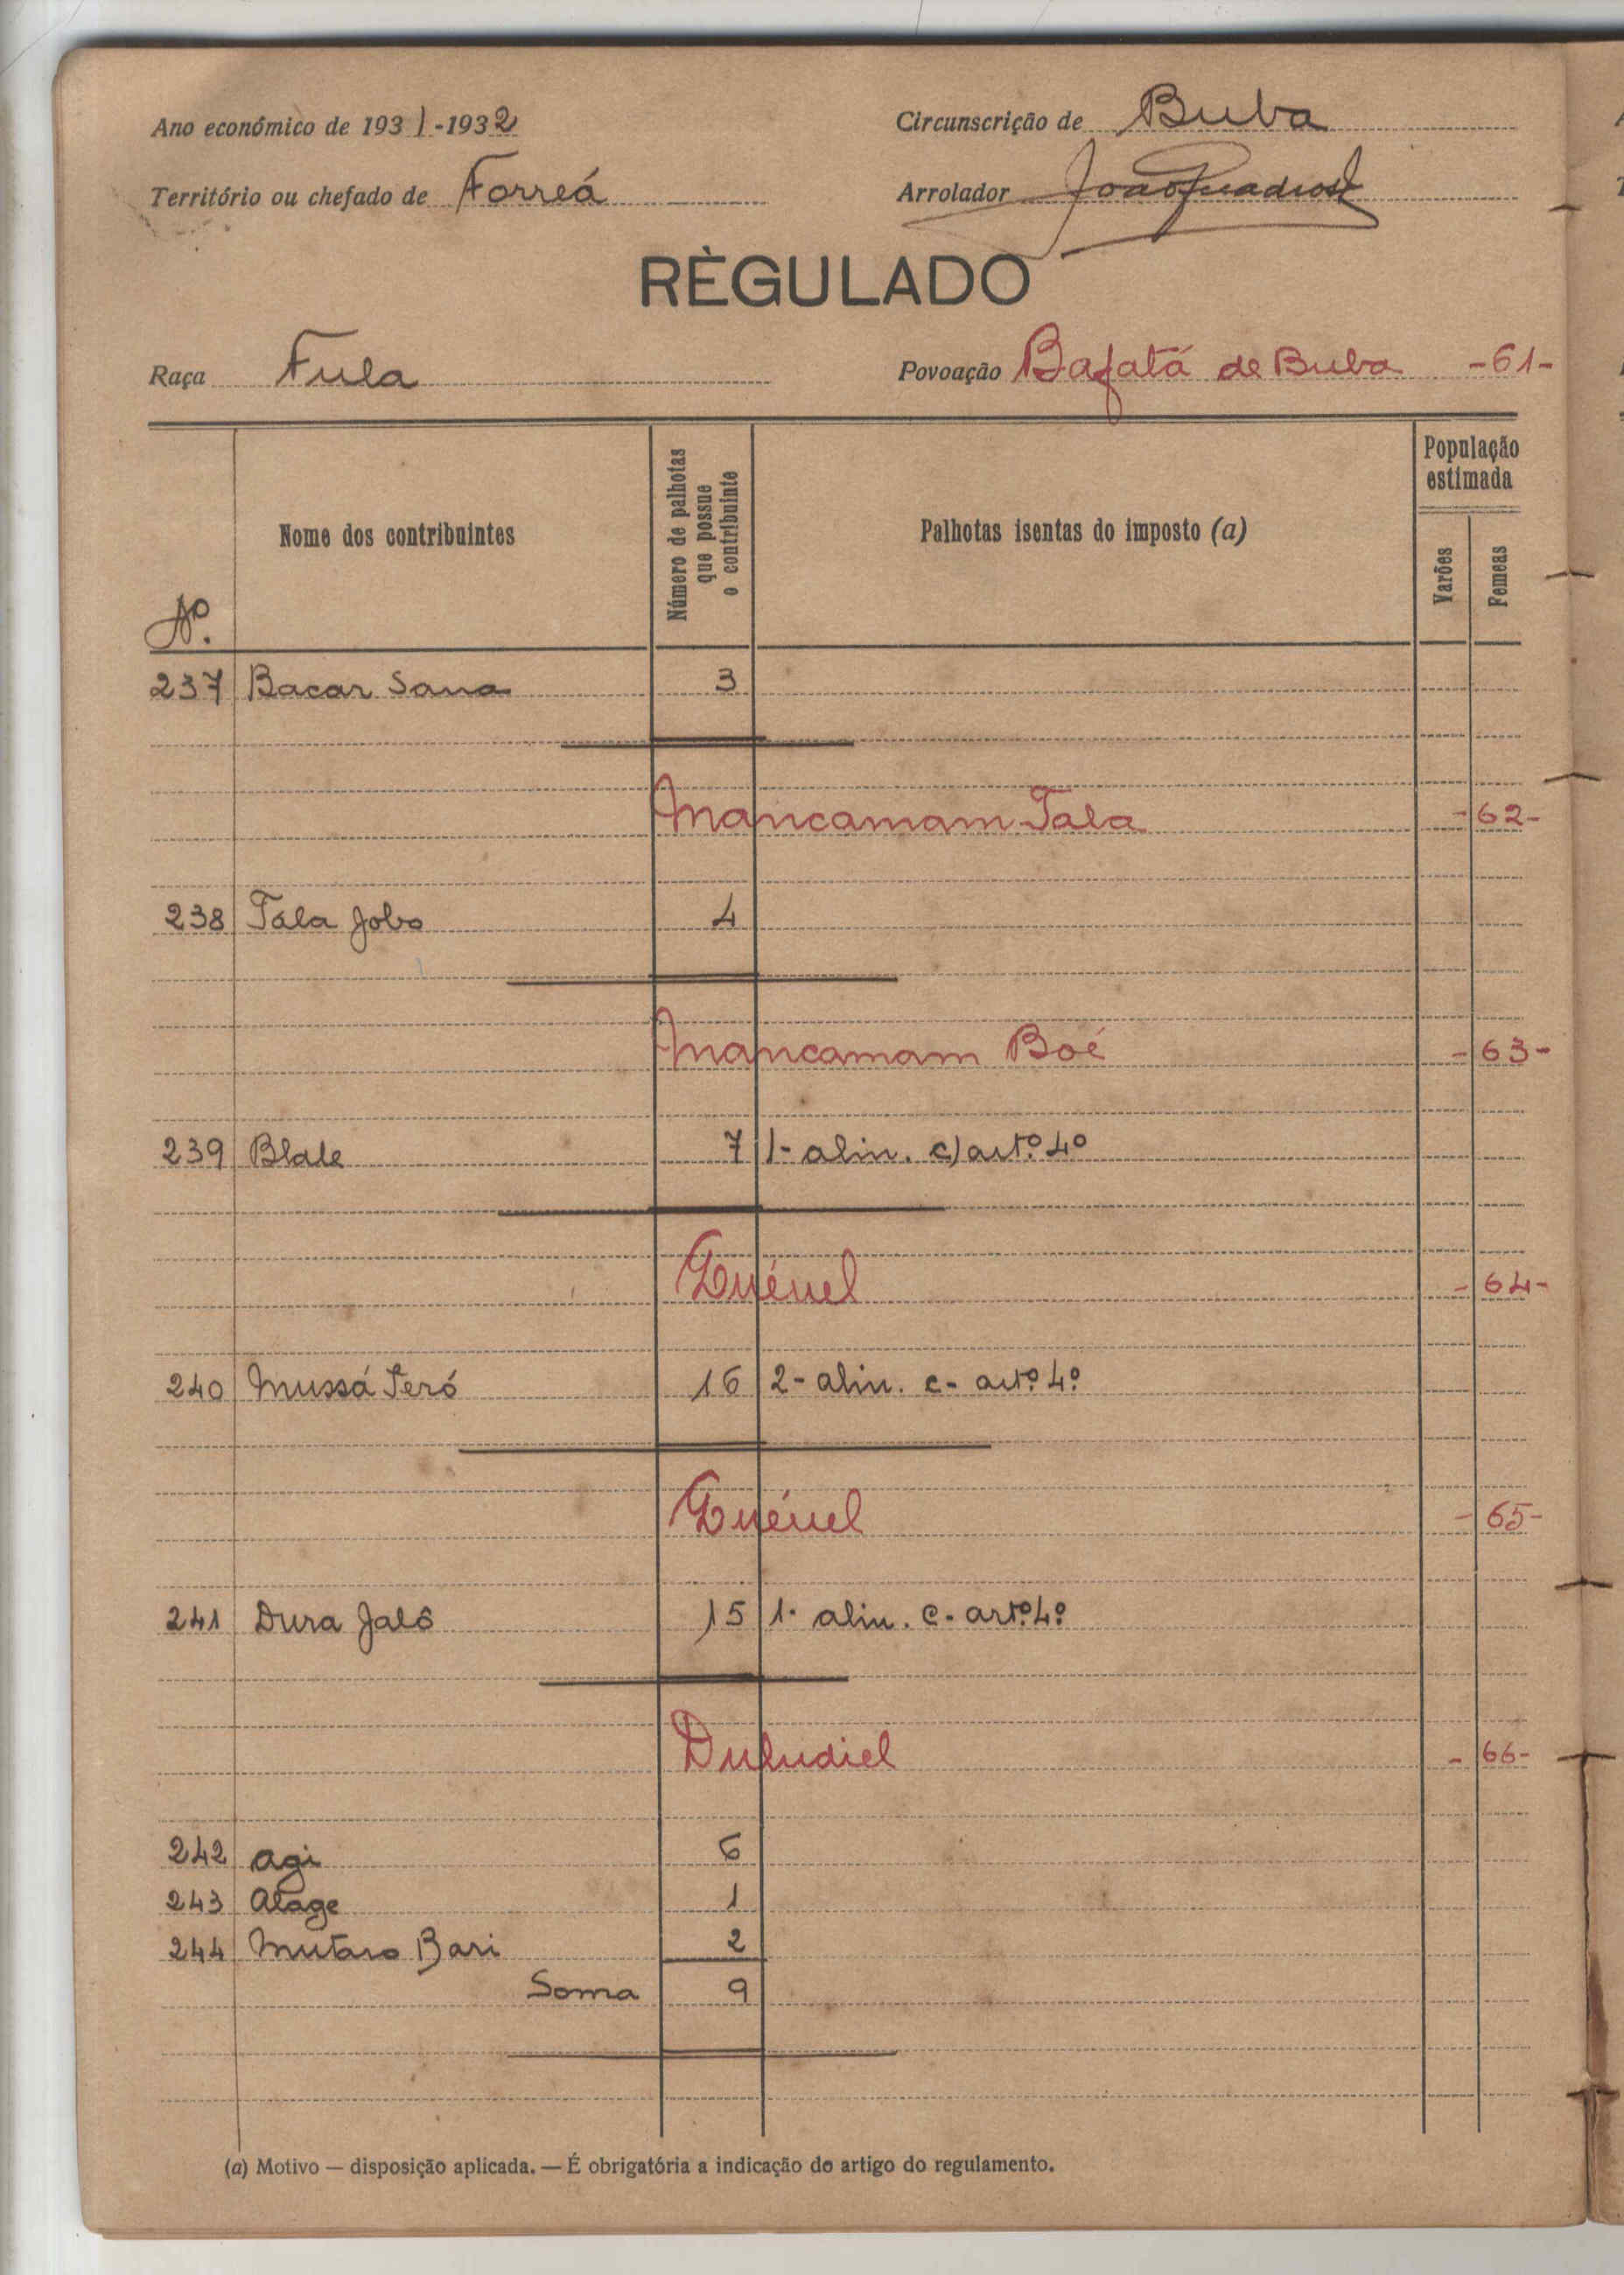 Ano económico de 1931-1932
Circunscrição de Buba
Território ou chefado de Forreá
Arrolador
RÈGULADO
Raça Fula
Povoação Bafatá de Buba -61-
Nº.
Nome dos contribuintes
Número de palhotas que possue o contribuinte
Palhotas isentas do imposto (a)
População estimada
Varões
Femeas
237 Bacar Sana 3
Mancamam Tala -62-
238 Tala Jobo 4
Mancamam Boé -63-
239 Blale 7 1- alin. c) artº. 4º
Guénel -64-
240 Mussá Seró 16 2- alin. c- artº. 4º
Guénel -65-
241 Dura Jalô 15 1- alin. c- artº. 4º
Duludiel -66-
242 agi 6
243 Alage 1
244 Mutaro Bari 2
Soma 9
(a) Motivo — disposição aplicada. — É obrigatória a indicação do artigo do regulamento.